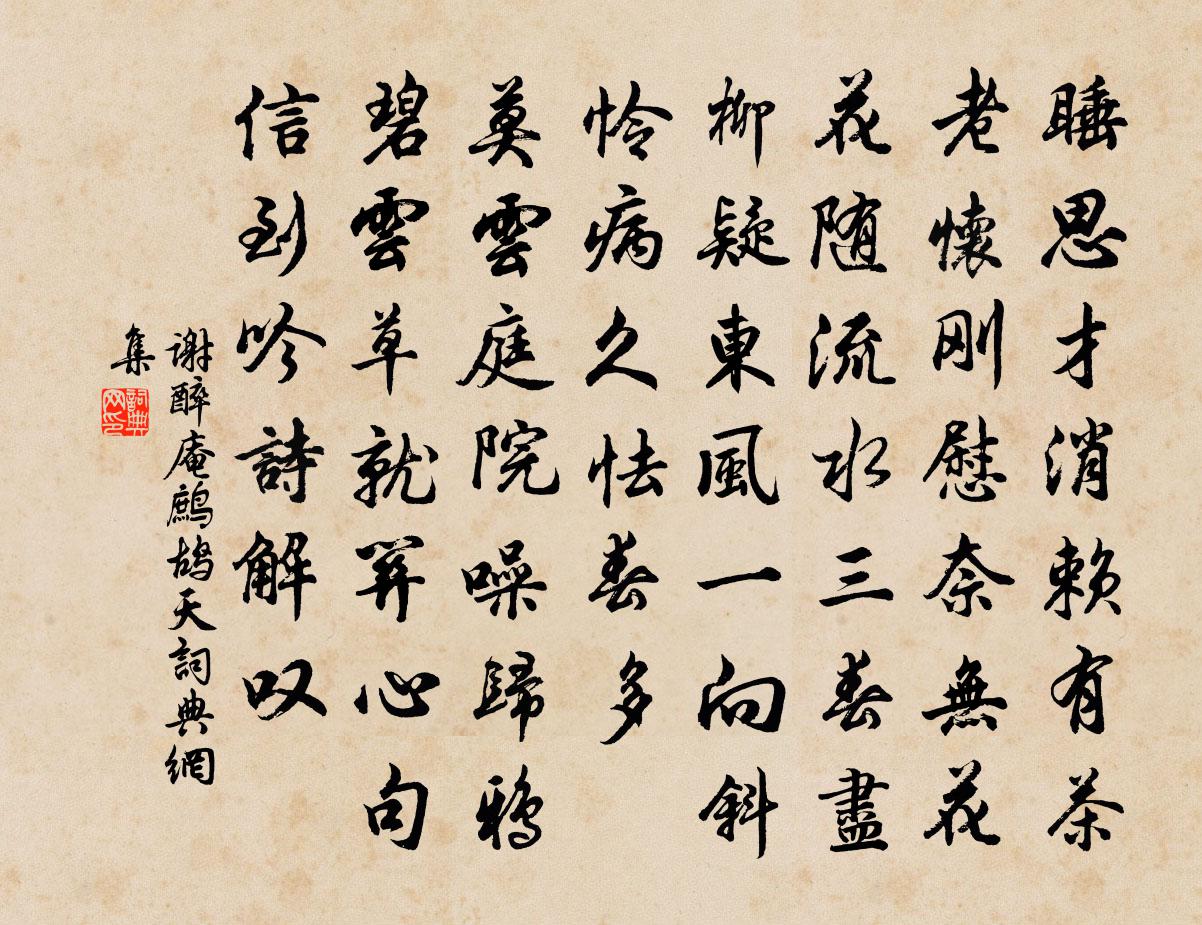 睡思才消赖有茶
老懷刚慰奈無花
花随流水三春盡
柳疑東風一向斜
怜病久怯春多
莫雲庭院噪歸鸦
碧雲草就心句
信到吟詩解叹
謝醉庵鷓鸪天詞典網
集
詞典
网印